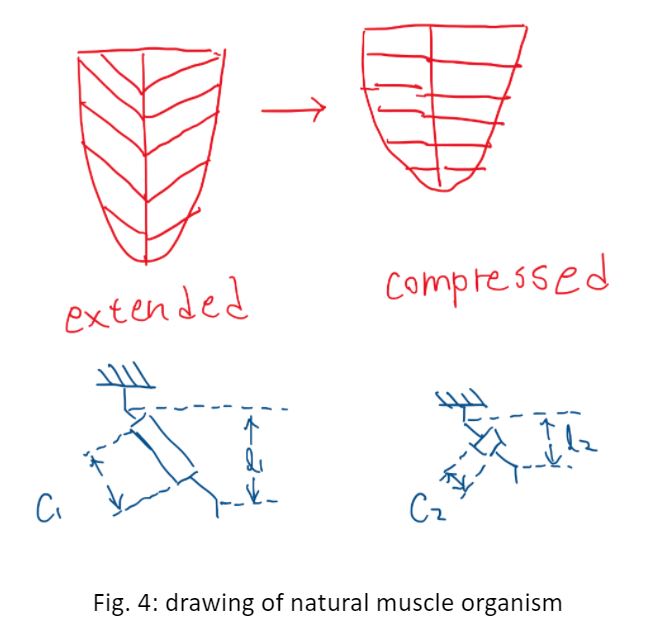 extended
compressed
C₁
l₁
C₂
l₂
Fig. 4: drawing of natural muscle organism